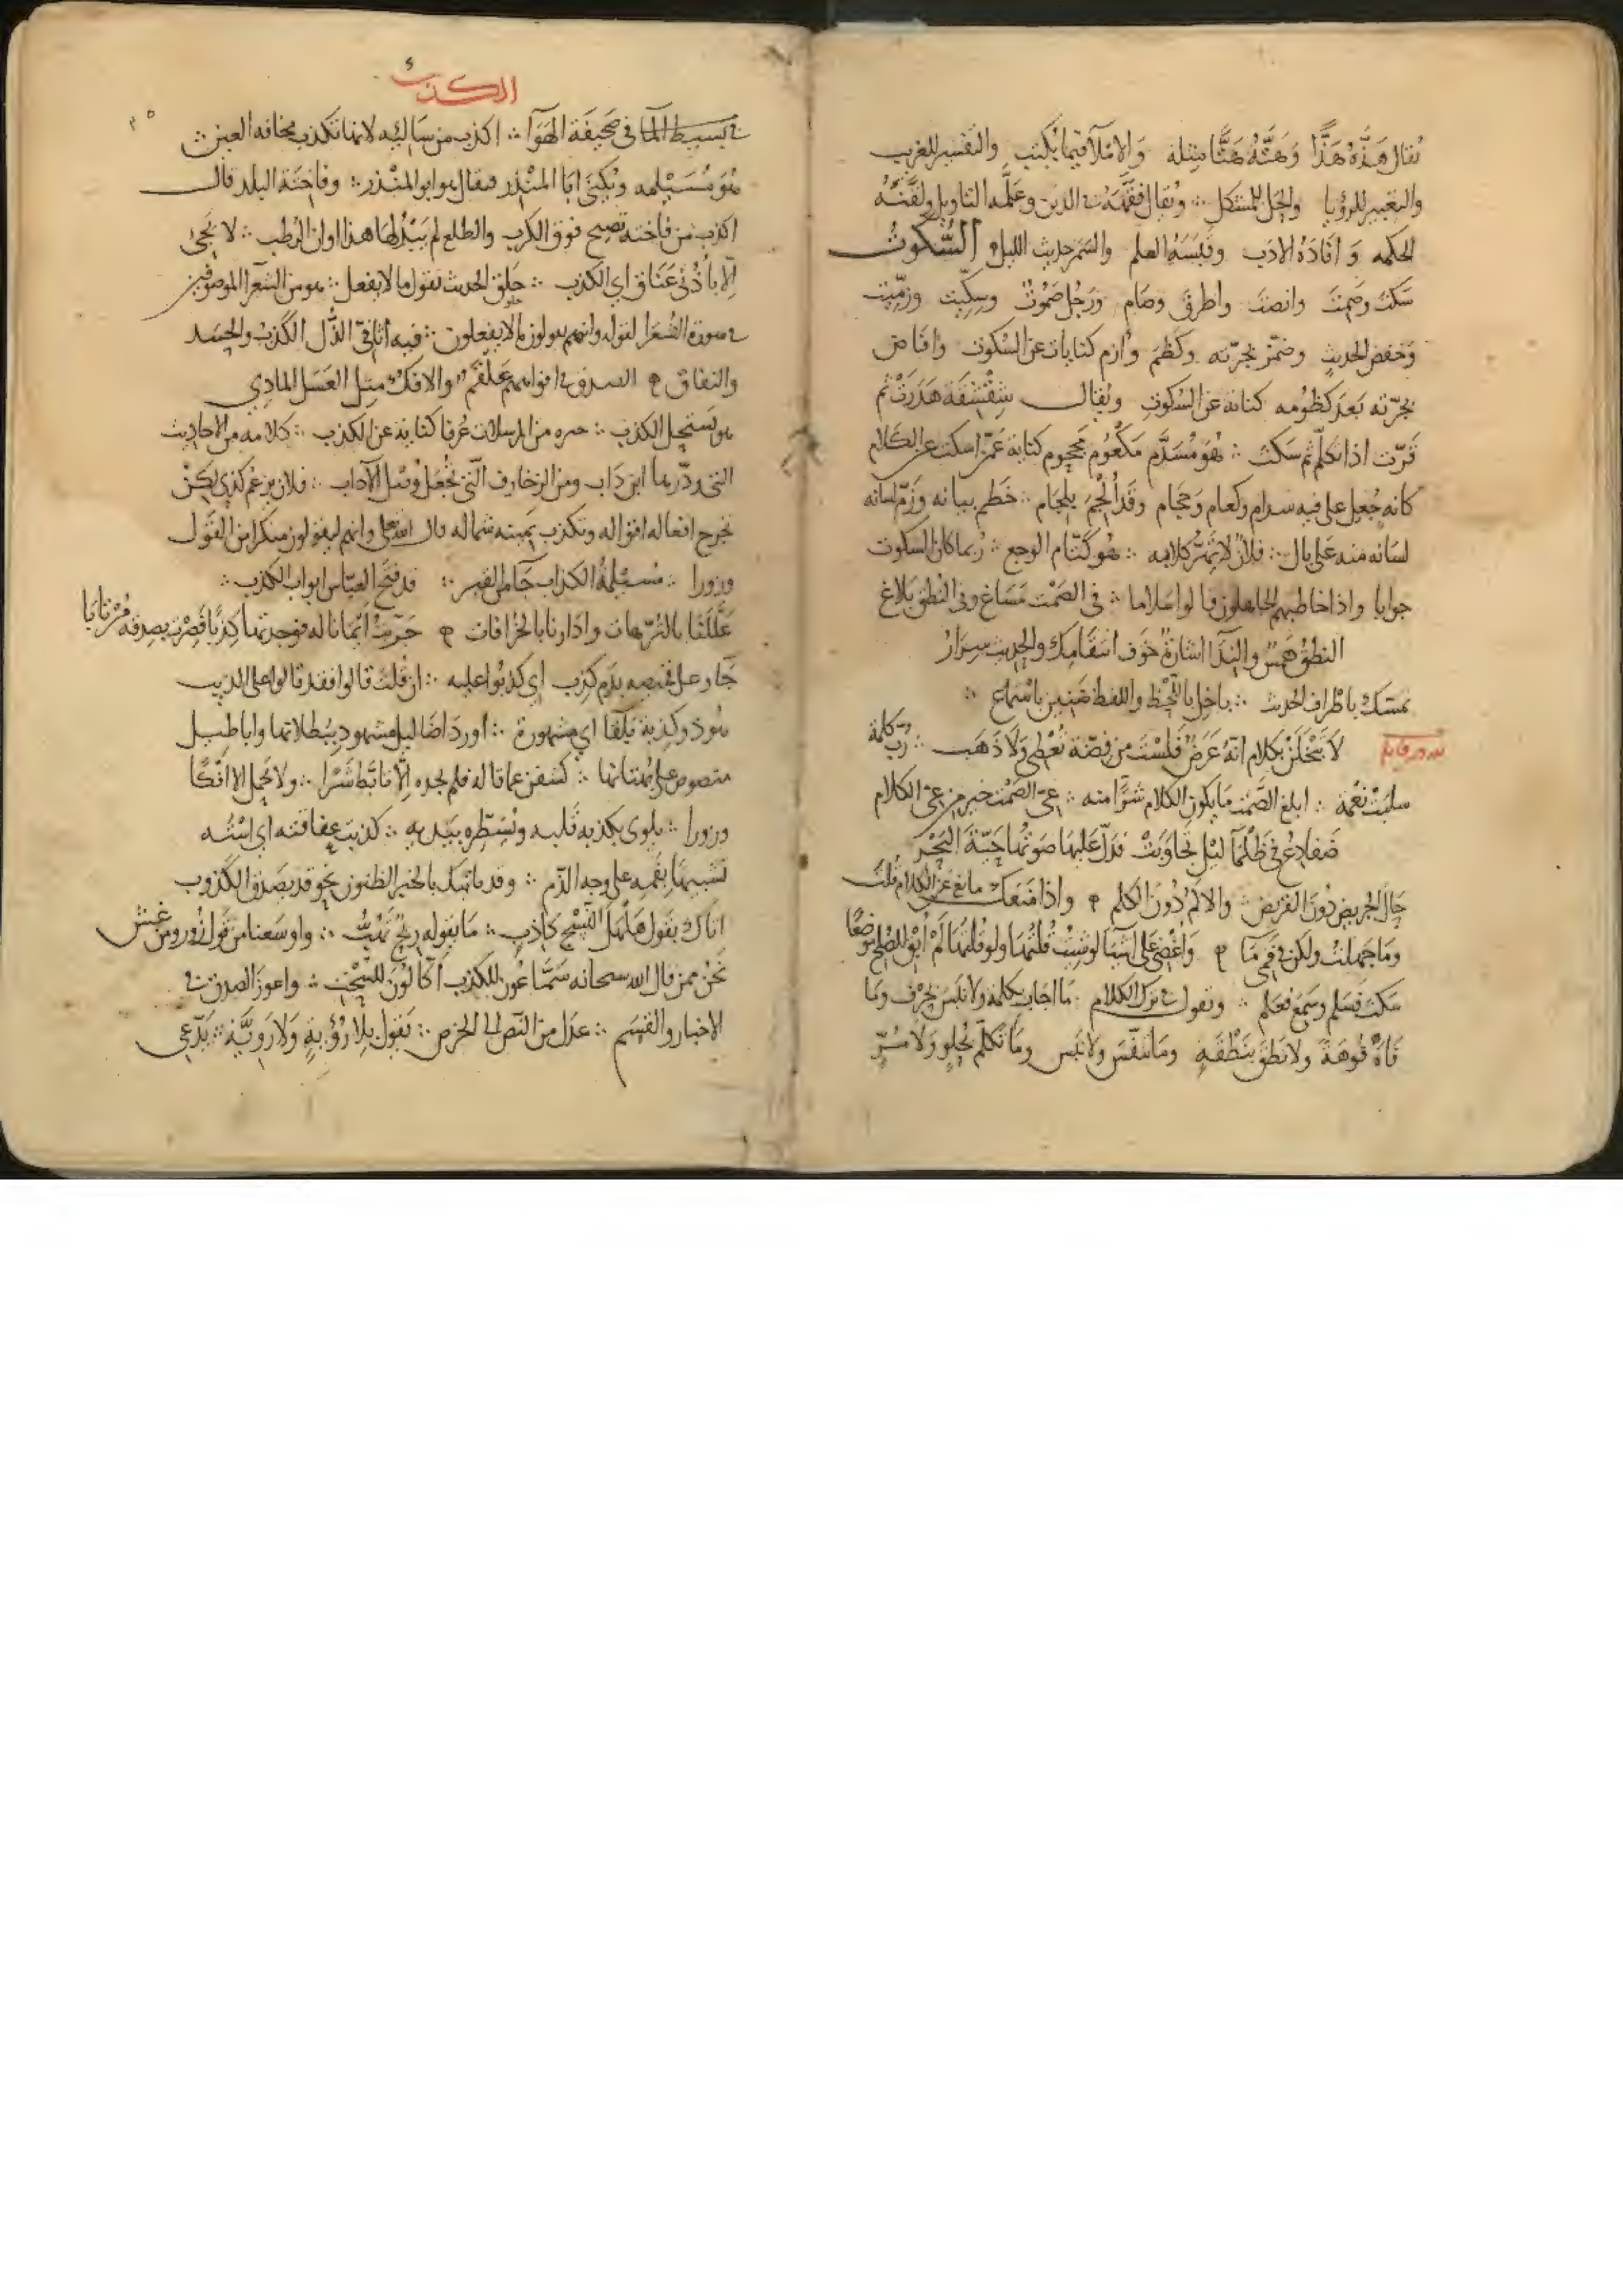 يقال هَذَّهُ هَذًّا وَهَتَّهُ هَتًّا مثله وَالإملآ فيما يُكتب والتفسير للغريب
والتعبير للرؤيا والحل للمشكل ∴ ويُقال فقّهَهُ في الدين وعلّمه التاويل ولقّنه
الحكمه وَ افادَهُ الادَب وقبّسَه العلم والسَمَر حديث الليل السُّكوتُ
سَكتَ وَصَمتَ وانصتَ واطرقَ وصَام وَرَجُل صَمُوتٌ وسِكّيت وزمّيت
وَخفض الحديث وضمّز بجرّته وكَظَمَ وأزم كنايات عن السُكوت وافاض
بجرّته بَعدَ كظومه كناية عن السُكوتِ ويُقال شِقْشِقَة هَدَرَتْ ثم
قَرّت اذا تكلّم ثم سَكتَ ∴ هُوَ مُسَدَّم مَكعُوم محجوم كناية عمّن اسكت عن الكلام
كانه جُعِل على فيه سِدام وكعام وَحجام وقَد أُلْجِمَ بلجَام ∴ خَطم بيانه وَزمّ لسانه
لسَانه منه عَلى بال ∴ فلانٌ لا كلامه ∴ هُو كتّام الوجع ∴ رُبما كان السكوت
جوابا واذا خاطبهم الجاهلون قالوا سلاما ∴ في الصَمْت مَسَاغ وفي النُطق بَلاغ
النطقُ هَمسٌ والنِدَآ اشارةٌ خَوف انتقامك والحديث سِرَارُ
تمسّك باطراف الحديث ∴ باخل باللّحظ واللفظ ضَنين باسْمَاع ∴
لا تَبْخَلَنْ بكلامٍ انّهُ عَرَضٌ فَلَسْتَ من فضّة تُعْطي وَلَا ذَهَب ∴ رُبّ كلمة
سلبَتْ نِعْمة ∴ ابلغ الصَمْت مَا يكون الكلام شرًّا منه ∴ عِيّ الصَمْت خير من عيّ الكلام
ضَفادِعُ في ظَلْمَآ ليْلٍ تجَاوَبَتْ فدَلّ عَليهَا صَوْتُها حَيّةَ البَحْر
حَال الجريض دُونَ القريض والالم دُونَ الكلم واذا مَنعَكَ مانع عن الكلام قلتَ
ومَا جَهِلتُ ولكن في فَمِي مَآ وَاغْضِي عَلى اشيَآ لو شِئْتُ قلتُهَا ولو قلتُهَا لَمْ اُبْقِ للصُلح موضعًا
سَكتَ فسَلم وسَمِعَ فعَلم ∴ وتقول في ترك الكلام مَا اجَاب بكلمة ولا نَبَسَ بحرْف وَمَا
فَاهَ فَوهَةً ولا نَطَقَ بنَطْقَةٍ ومَا تنَفّسَ ولا نبَس ومَا تكلّم بحُلوٍ وَلا مُرٍّ
الكذب
في بَسيط المآ في صَحيفَة الهَوَآ ∴ اكذب من سَالِئه لانها تكذب مخافة العين ∴
هُوَ مُسَيْلِمه ويُكنى ابَا المُنْذر فيقال هو ابو المنْذر ∴ وفَاختَة البلد قال
اكذب من فاخته تصيح فوق الكرب والطلع لم يَبْدُ لهَا هذا اوان الرُطب ∴ لا يَجيُ
اِلّا باُذُني عَنَاق اي الكذب ∴ خَلق الحديث يَقول ما لا يفعل ∴ هو من الشعرَآ الموصوفين
في سورة الشعرَا لقوله وانهم يقولون ما لا يفعلون ∴ فيه اثافيّ الذّل الكَذبُ والحسَد
والنفاق الصدق في افواههم عَلْقَم والافك مثل العَسَل الماذي
هو يَستحِل الكذب ∴ من المرسلات عُرفا كناية عن الكذب ∴ كلامه من الاحاديث
التي ابن دَاب ومن الزخارف التي الآداب ∴ فلان
يجرح افعاله اقواله وتكذب يَمينه شماله قال الله تعالى وانهم ليقولون منكرا من القَول
وزورا ∴ مُسَيْلِمةُ الكذاب ∴ قد فتَح العبّاس ابواب الكذب ∴
عَلَّلَنا بالتُرّهات وادارنا بالخُرافات جَرّبتُ ايْمانا له فوجدتها كذبًا فصِرْت بصدقه مُرْتابَا
جآؤ على قميصه بدَم كذِب اي كذبُوا عليه ∴ ان قُلتَ قالوا فقد قالوا على الذيب
هُوَ ذو كذبة بَلقآ اي مشهورة ∴ اورد اضَاليل مشهود ببُطلانها واباطيل
منصوص على بُهتانها ∴ كشفتُ عما قاله فلم اجده اِلّا تابّط شَرّا ∴ ولا تحمل الا افْكًا
وزورا ∴ يلوى بكذبه قلبه ونُسَطّره بيَديه ∴ كذبت عفاقته اي اسْتُه
تشبيهًا بفمِه على وجه الذّم ∴ وقد ياتيك بالخبر الظنون وقد يَصدق الكَذوب
اتاك بقول هَلْهَل النَّسْج كاذبٍ ∴ مَا يَقوله ريحٌ تَهُبُّ ∴ واوسَعنا من قول زورٍ ومن غش
نحْنُ ممن قال الله سبحانه سَمَّاعُون للكذب اَكّالُونَ للسُّحْتِ ∴ واعوز الصدق في
الاخبار والقِسَم ∴ عدل من النّص الى الخَرص ∴ يَقول بِلا رُؤْيةٍ وَلا رَوِيَّةٍ ∴ يَدّعي